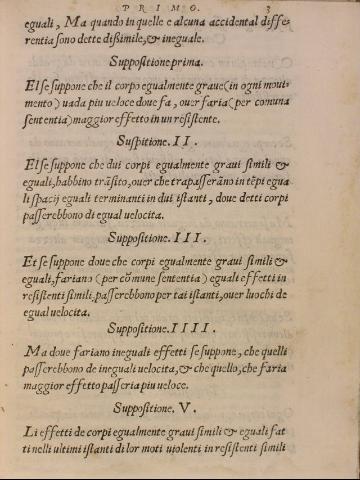 PRIMO. 3
eguali, Ma quando in quelle e alcuna accidental diffe-
rentia sono dette dißimile, & ineguale.
Suppositione prima.
El se suppone che il corpo egualmente graue (in ogni moui-
mento) uada piu ueloce doue fa, ouer faria (per comuna
sententia) maggior effetto in un resistente.
Suspitione. II.
El se suppone che dui corpi egualmente graui simili &
eguali, habbino trãsito, ouer che trapasserãno in tẽpi egua
li spacij eguali terminanti in dui istanti, doue detti corpi
passerebbono di egual uelocita.
Suppositione. III.
Et se suppone doue che corpi egualmente graui simili &
eguali, fariano (per cõmune sententia) eguali effetti in
resistenti simili, passerebbono per tai istanti, ouer luochi de
egual uelocita.
Suppositione. IIII.
Ma doue fariano ineguali effetti se suppone, che quelli
passerebbono de ineguali uelocita, & che quello, che faria
maggior effetto passeria piu ueloce.
Suppositione. V.
Li effetti de corpi egualmente graui simili & eguali fat
ti nelli ultimi istanti di lor moti uiolenti in resistenti simili